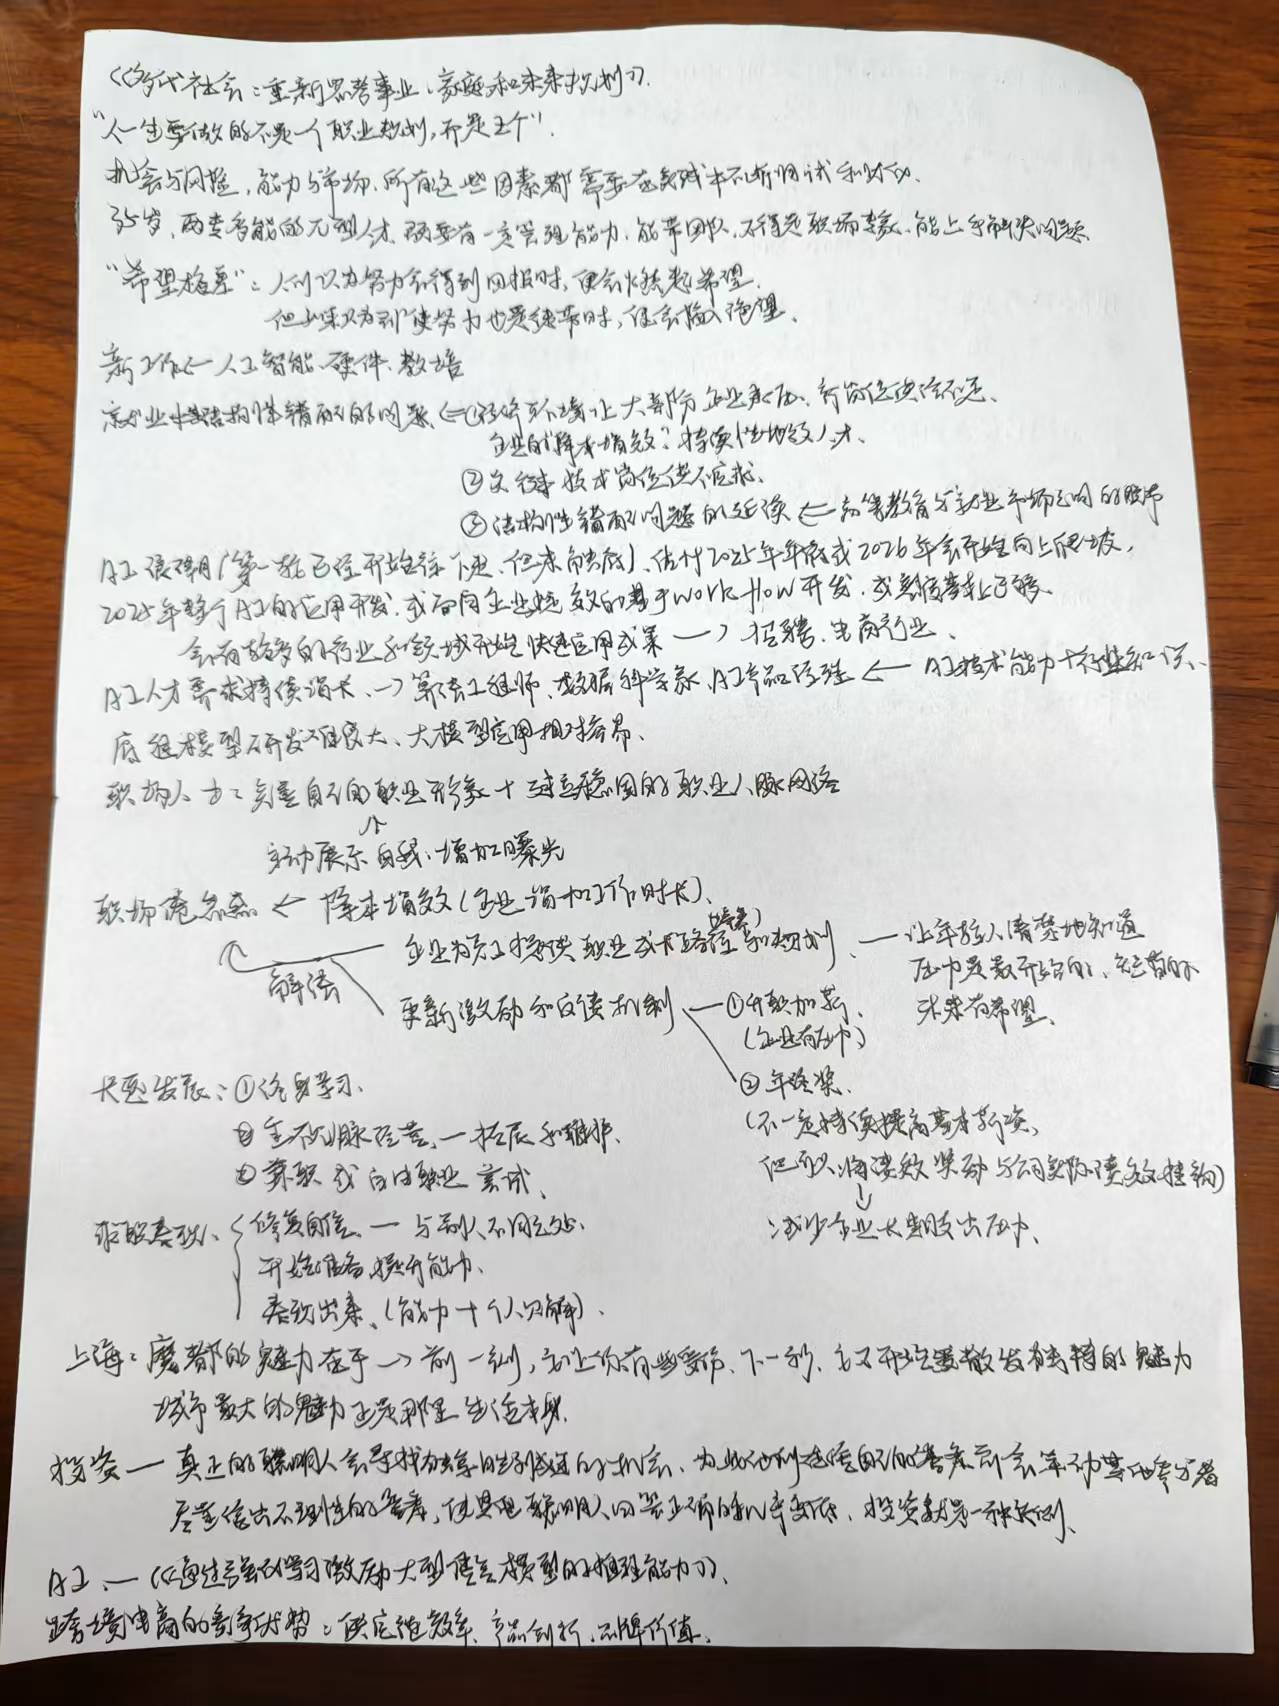 《多代社会：重新思考事业、家庭和未来规划》.
"人一生要做的不是一个职业规划,而是五个".
机会与风险,能力与市场.所有这些因素都需要在实践中不断调试和财动.
35岁,两专多能的π型人才.既要有一定管理能力.能带团队,不得是职场专家.能上手解决问题
"希望格差"：人们以为努力会得到回报时,便会燃起希望.
但如果以为即使努力也是徒劳时,便会陷入绝望.
新工作←人工智能.硬件.教培
就业中结构性错配的问题.←①经济环境让大部分企业承压.新岗位供给不足.
企业的"降本增效".持续性地效人才.
②文 技术岗位供不应求.
③结构性错配问题的延续←高等教育与就业市场之间的脱节
AI浪潮(第一轮已经开始往下走.但未触底).估计2025年年底或2026年会开始向上爬坡,
2025年整个AI的应用开发.或面向企业提效的基于work flow开发.或
会有较多的行业和领域开始快速应用成果→招聘.电商行业.
AI人才要求持续增长.→算法工程师.数据科学家.AI产品经理←AI技术能力+行业知识.
底层模型研发难度大、大模型应用相对容易.
职场人士：完善自己的职业形象+建立稳固的职业人脉网络
↑
主动展示自我.增加曝光
职场倦怠感←降本增效(企业增加工作时长).
解法
企业为员工提供职业成长路径(培养)和规划—让年轻人清楚地知道
压力是散开给的,短暂的
未来有希望.
更新激励和反馈机制—①升职加薪.
(企业有压力)
②年终奖.
(不一定持续提高基本薪资,
但可以将绩效奖励与公司实际绩效挂钩)
↓
减少企业长期支出压力.
长远发展：①终身学习.
②全 人脉经营.—拓展和维护.
③兼职或自由职业尝试.
求职 修复自信.—与别人不同之处.
开始准备提升能力.
表现出来.(能力+个人见解).
上海：魔都的魅力在于→前一刻,它让你有些委屈.下一秒.它又开始要散发独特的魅力
城市最大的魅力正是那里生活本身.
投资—真正的聪明人会寻找 的机会.为此他们 自己的答案而会 其他参与者
尽量给出不理性的答案,使其他聪明人回答正确的概率变低.投资就是一种 例.
AI.—《通过强化学习激励大型语言模型的推理能力》.
跨境电商的竞争优势：供应链效率.产品创新.品牌价值.